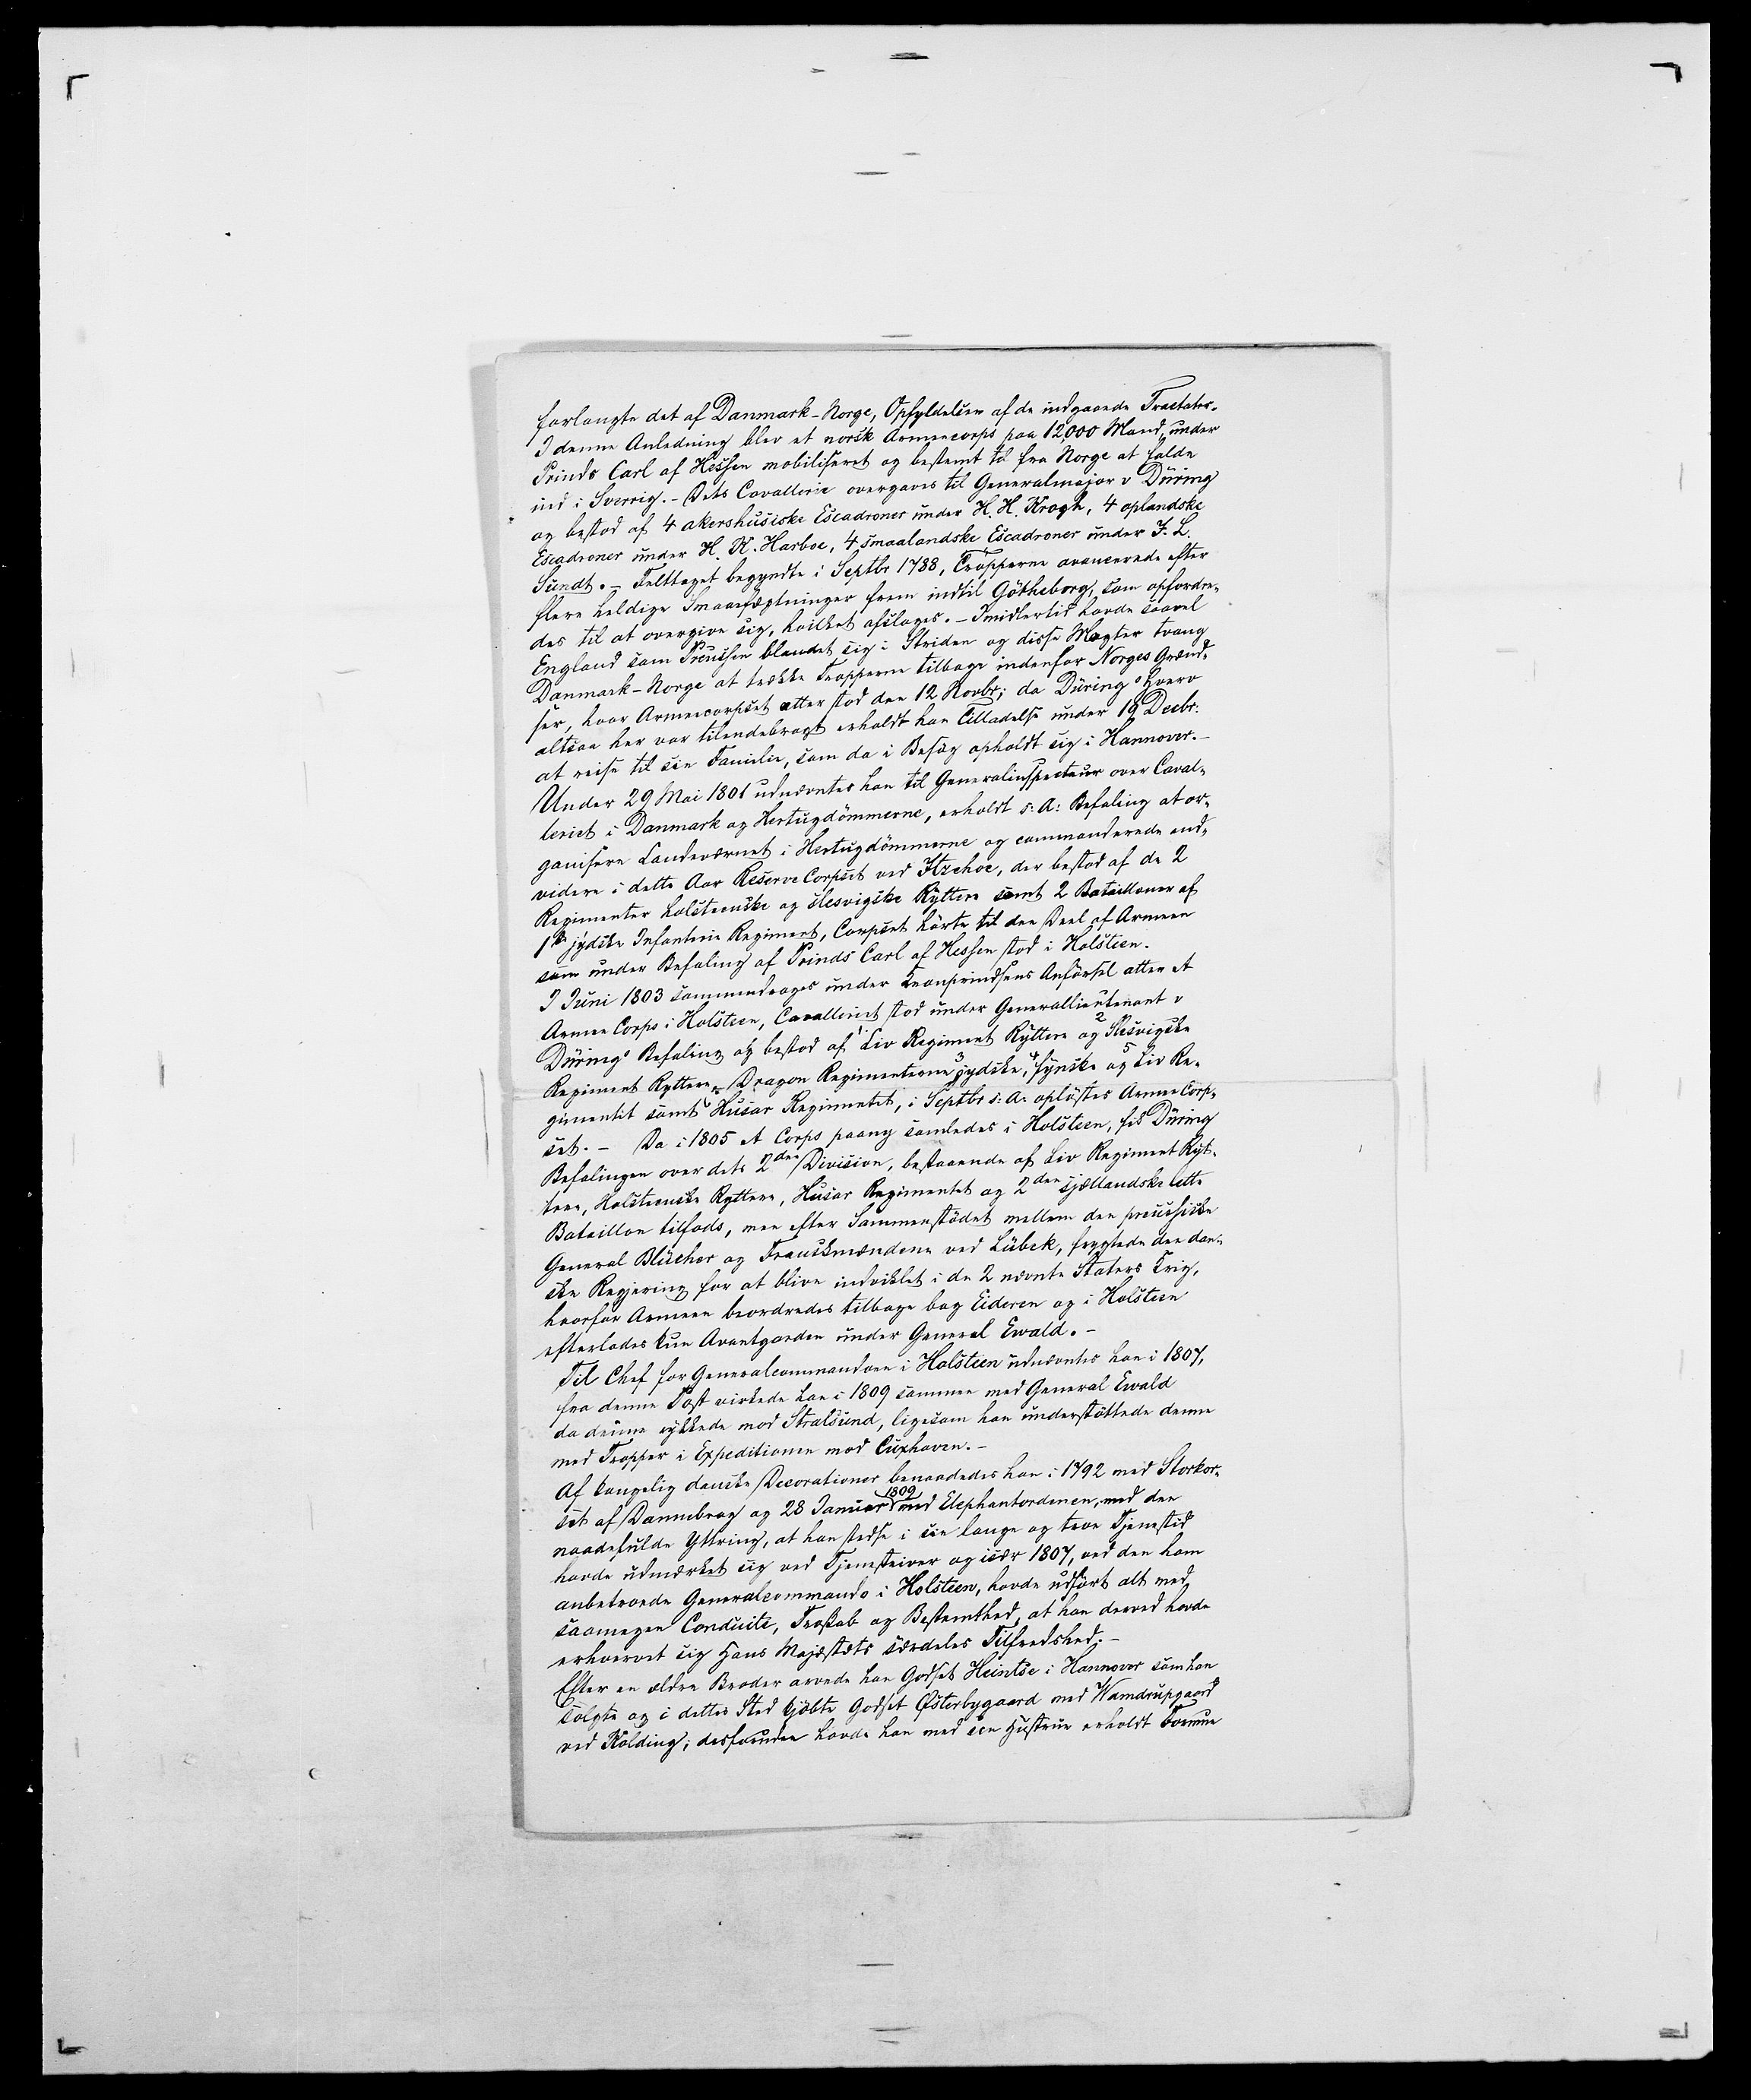 forlangte det af Danmark-Norge, Opfyldelsen af de indgaaede Tractater.
I denne Anledning blev et norsk Armeecorps paa 12,000 Mand, under
Prinds Carl af Hessen mobiliseret og bestemt til fra Norge at falde
ind i Sverrig. - Dets Cavallerie overgaves til Generalmajor v Düring
og bestod af 4 akershusiske Escadroner under H. H. Krogh, 4 oplandske
Escadroner under H. K. Harboe, 4 smaalandske Escadroner under J. L.
Sundt. - Felttoget begyndte i Septbr 1788, Tropperne avancerede efter
flere heldige Smaafægtninger frem indtil Götheborg, som opfordre-
des til at overgive sig, hvilket afsloges. - Imidlertid havde saavel
England som Preussen blandet sig i Striden og disse Magter tvang
Danmark-Norge at trække Tropperne tilbage indenfor Norges Grænd-
ser, hvor Armeecorpset atter stod den 12 Novbr; da Dürings Hverv
altsaa her var tilendebragt erholdt han Tilladelse under 19 Decbr.
at reise til sin Familie, som da i Besøg opholdt sig i Hannover. -
Under 29 Mai 1801 udnævntes han til Generalinspecteur over Caval-
leriet i Danmark og Hertugdömmerne, erholdt s: A: Befaling at or-
ganisere Landeværnet i Hertugdömmerne og commanderede end-
videre i dette Aar Reserve Corpset ved Itzehoe, der bestod af de 2
Regimenter holsteenske og slesvigske Ryttere samt 2 Batailloner af
1ste jydske Infanterie Regiment, Corpset hörte til den Deel af Armeen
som under Befaling af Prinds Carl af Hessen stod i Holsteen.
I Juni 1803 sammendroges under Kronprindsens Anförsel atter et
Armee Corps i Holsteen, Cavalleriet stod under Generallieutenant v
Dürings Befaling og bestod af 1 Liv Regiment Ryttere og 2 Slesvigske
Regiment Ryttere, Dragon Regimenterne 3 jydske, 4 fynske og 5 Liv Re-
gimentet samt 6 Husar Regimentet, i Septbr s: A: oplöstes Armee Corp-
set. - Da i 1805 et Corps paany samledes i Holsteen, fik Düring
Befalingen over dets 2den Division, bestaaende af Liv Regiment Ryt-
tere, Holsteenske Ryttere, Husar Regimentet og 2den sjællandske lette
Bataillon tilfods, men efter Sammenstödet mellem den preussiske
General Blücher og Franskmændene ved Lübek, frygtede den dan-
ske Regjering for at blive indviklet i de 2 nævnte Staters Krig,
hvorfor Armeen beordredes tilbage bag Eideren og i Holsteen
efterlodes kun Avantgarden under General Ewald. -
Til Chef for Generalcommandoen i Holsteen udnævntes han i 1807,
fra denne Post virkede han i 1809 sammen med General Ewald
da denne rykkede mod Stralsund, ligesom han understöttede denne
med Tropper i Expeditionen mod Cuxhaven. -
Af kongelig danske Decorationer benaadedes han i 1792 med Storkor-
set af Dannebrog og 28 Januar 1809 med Elephantordenen, med den
naadefulde Yttring, at han stedse i sin lange og troe Tjenestid
havde udmærket sig ved Tjenesteiver og især 1807, ved den ham
anbetroede Generalcommando i Holsteen, havde udfört alt med
saamegen Conduite, Troskab og Bestemthed, at han derved havde
erhvervet sig Hans Majestæts særdeles Tilfredshed. -
Efter en ældre Broder arvede han Godset Heintse i Hannover som han
solgte og i dettes Sted kjöbte Godset Østerbygaard med Wamdrupgaard
ved Kolding; desforuden havde han med sin Hustrue erholdt